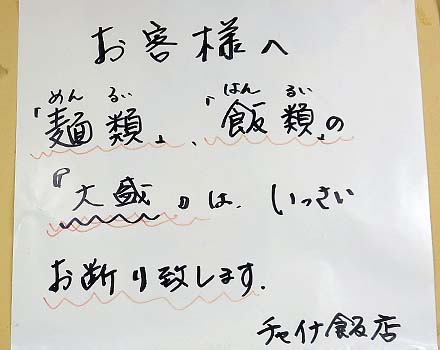 お客様へ
「麺類」、「飯類」の
『大盛』は、いっさい
お断り致します.
チャイナ飯店
めん るい
はん るい